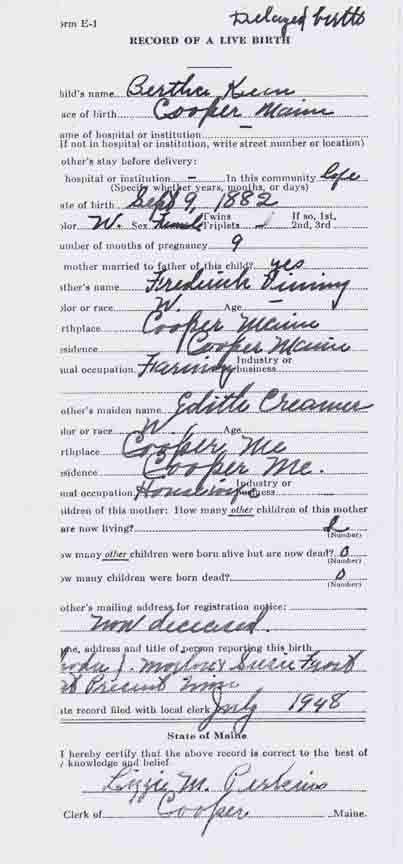 orm E-1 Delayed birth
RECORD OF A LIVE BIRTH
hild's name Bertha
ace of birth Cooper Maine
ame of hospital or institution –
(If not in hospital or institution, write street number or location)
other's stay before delivery:
hospital or institution – In this community life
(Specify whether years, months, or days)
ate of birth Sept 9, 1882
olor W. Sex Female Twins Triplets – If so, 1st, 2nd, 3rd
umber of months of pregnancy 9
mother married to father of this child? yes
ather's name Frederick
olor or race W. Age
rthplace Cooper Maine
esidence Cooper Maine
ual occupation Farming Industry or business
other's maiden name Edith Creamer
olor or race W. Age
rthplace Cooper, Me
esidence Cooper Me.
ual occupation Housewife Industry or business
ildren of this mother: How many other children of this mother
are now living? 2
(Number)
ow many other children were born alive but are now dead? 0
(Number)
ow many children were born dead? 0
(Number)
other's mailing address for registration notice:
now deceased
me, address and title of person reporting this birth
Susie Frost
at Present time
ate record filed with local clerk July 1948
State of Maine
I hereby certify that the above record is correct to the best of
y knowledge and belief
Lizzie M. Perkins
Clerk of Cooper Maine.